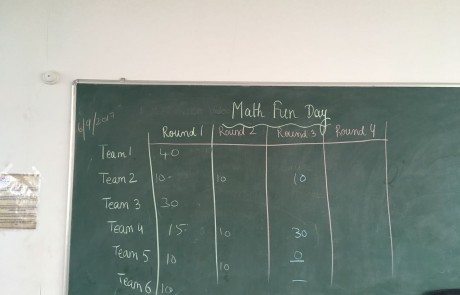 6/9/2017
Math Fun Day
Round 1 Round 2 Round 3 Round 4
Team 1 40
Team 2 10 10 10
Team 3 30
Team 4 15 10 30
Team 5 10 10 0
Team 6 10 –